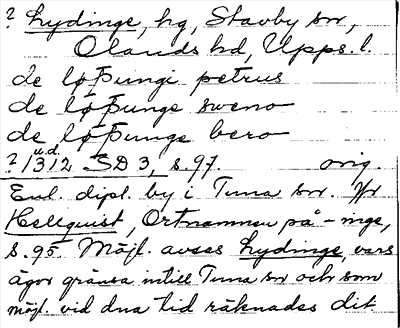 ? Lydinge, hg, Stavby sn,
Olands hd, Upps. l.
de løþungi petrus
de løþunge sweno
de løþunge bero
? u.d. 1312 SD 3, s. 97. orig.
Enl. dipl. by i Tuna sn. Jfr
Hellquist, Ortnamnen på -inge,
s. 95. Möjl. avses Lydinge, vars
ägor gränsa intill Tuna sn och som
möjl. vid dna tid räknades dit